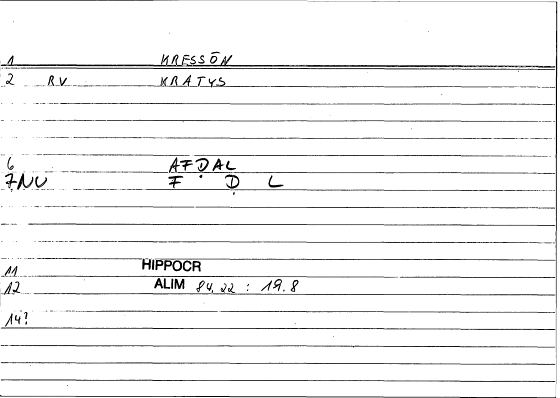 1 KRESSŌN
2 RV KRATYS
6 AFḌAL
7NU F Ḍ L
11 HIPPOCR
12 ALIM 84,22 : 19.8
14?